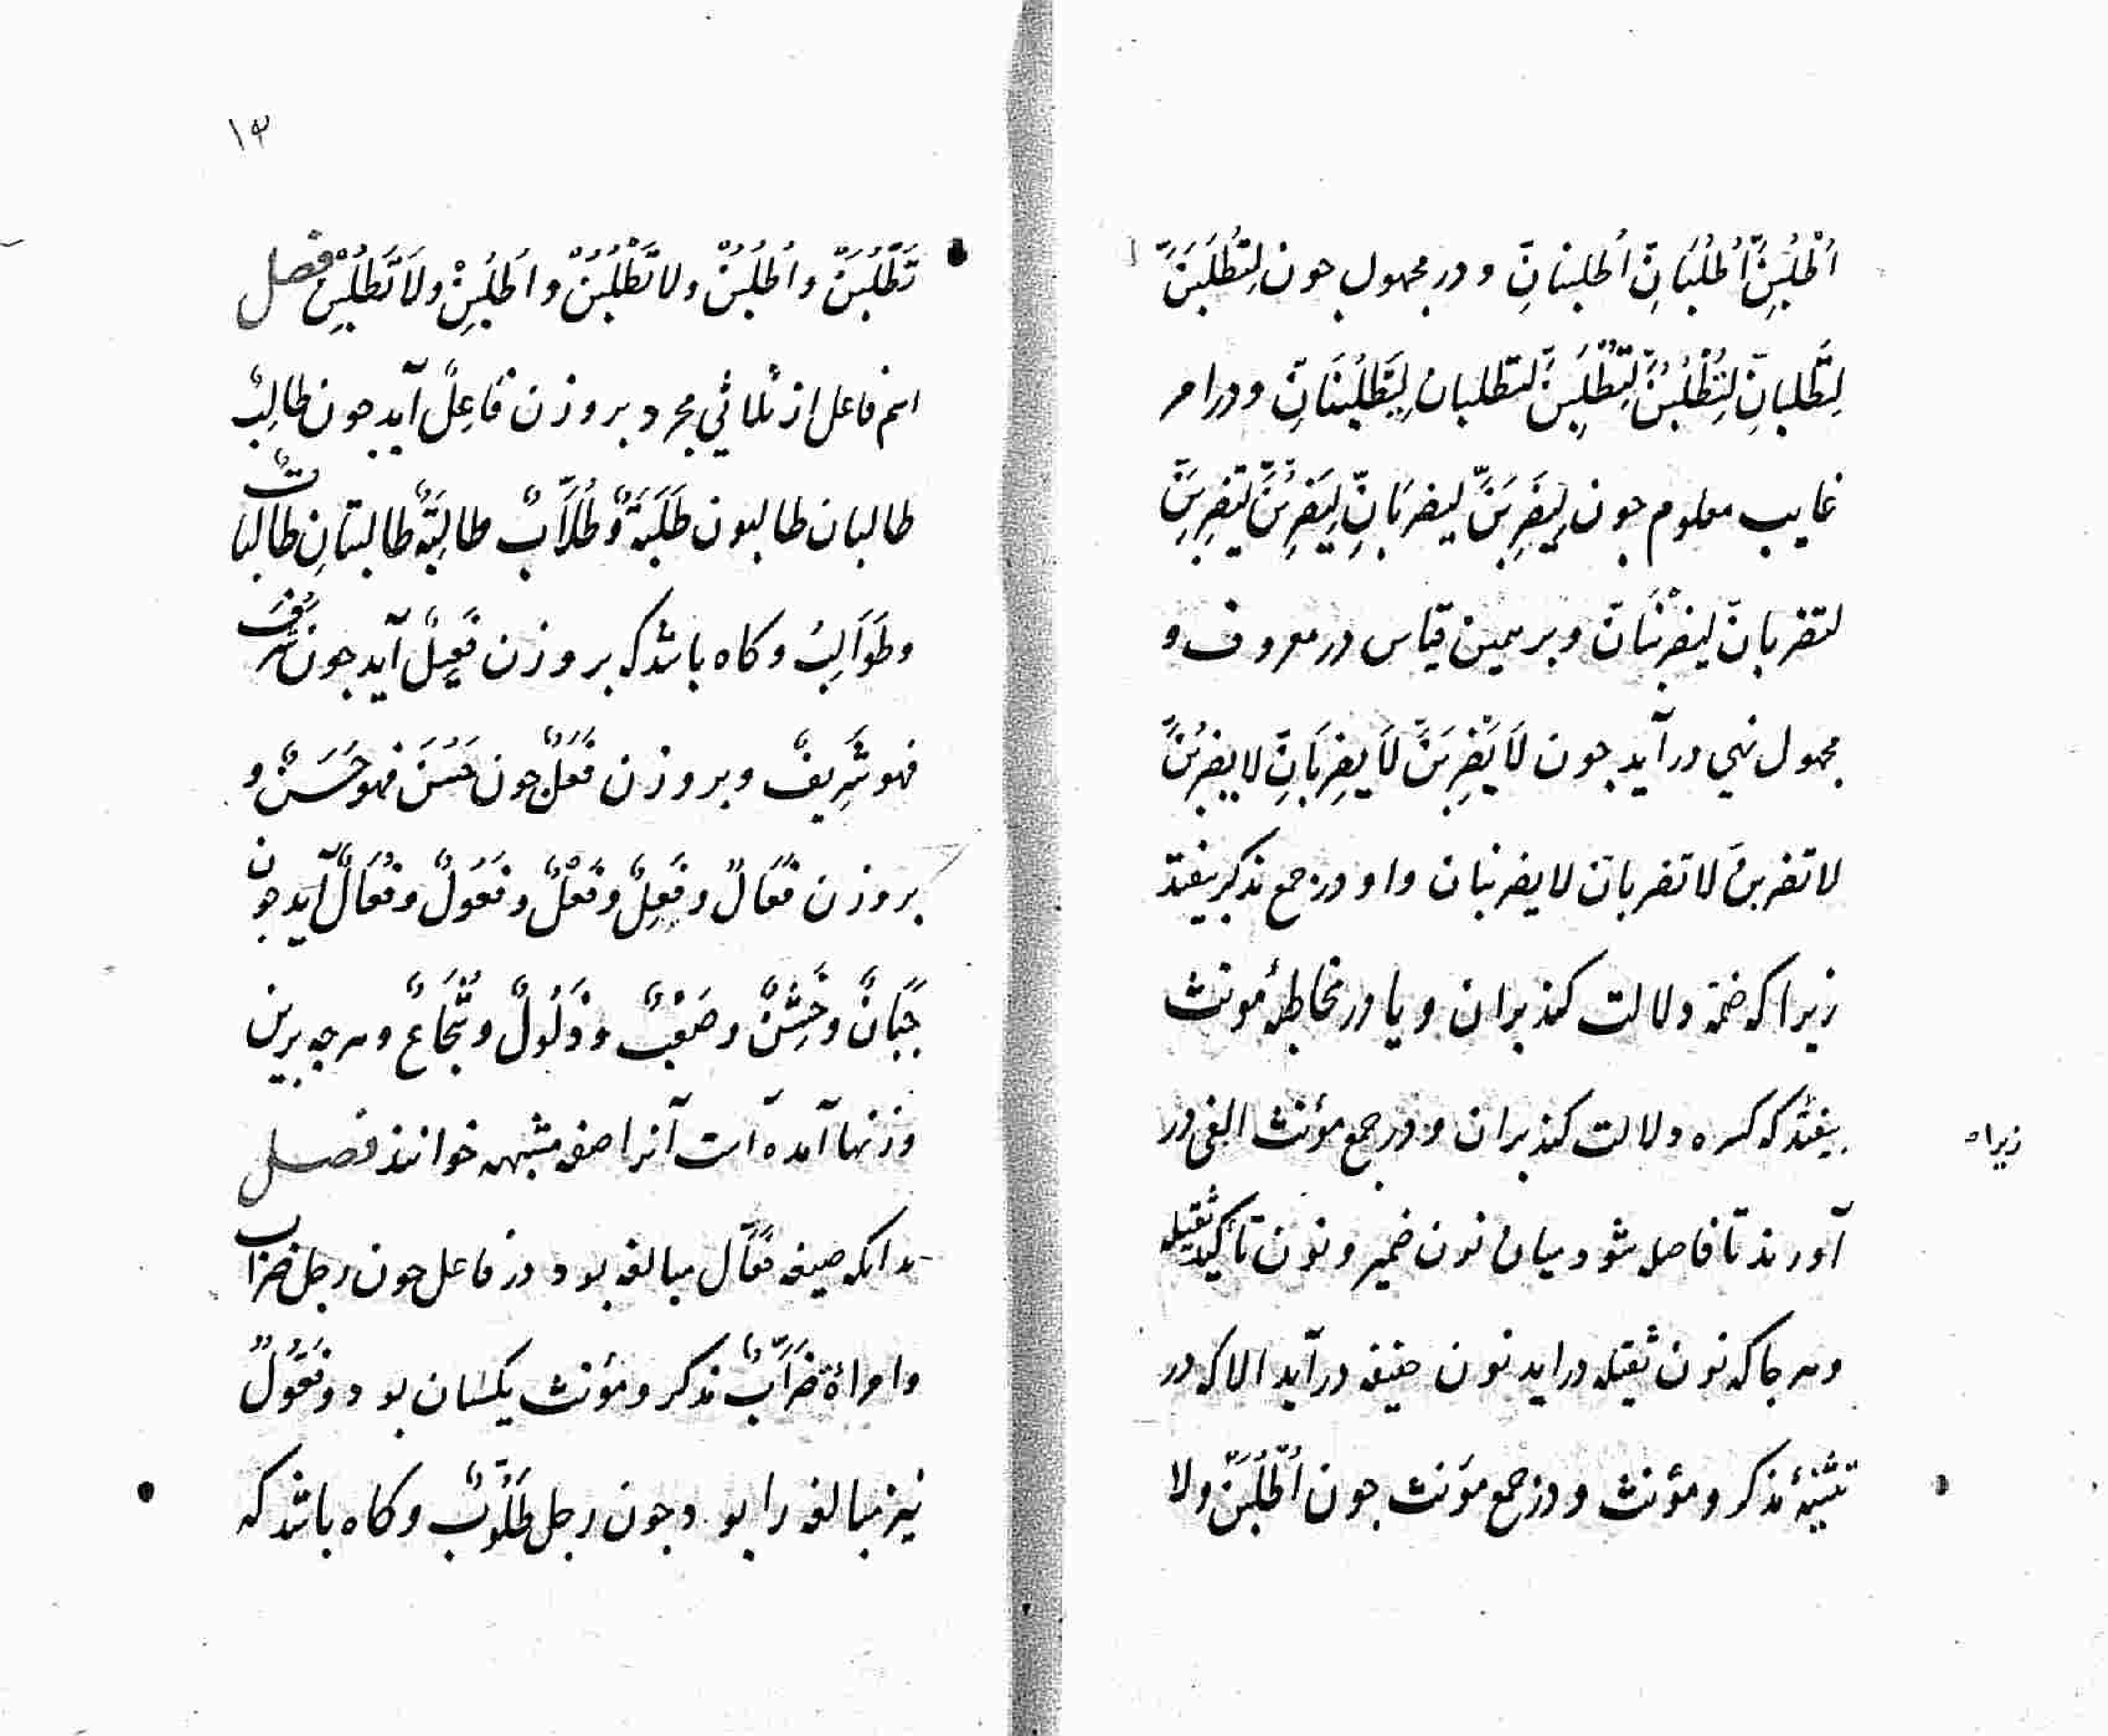 اُطْلُبِنَّ اُطْلُبَانِّ اُطلبنانِّ و در مجهول جون لِتُطْلَبَنَّ
لِتُطْلَبانِّ لِتُطْلَبُنَّ لِتُطْلَبِنَّ لتطلبان لِتُطْلَبْنَانِّ و در امر
غایب معلوم جون لِیَضْرِبَنَّ لیضربَانِّ لِیَضْرِبُنَّ لِتضرِبَنَّ
لتضربانّ لیضربْنَانّ و برهمین قیاس در معروف و
مجهول نهی درآید جون لَا یَضْرِبَنَّ لَا یضرِبَانِّ لا یضرِبُنَّ
لا تضربنَّ لا تضربانّ لا یضربنان واو در جمع مذکر بیفتد
زیرا که ضمه دلالت کند بران و یا در مخاطبهٔ مونث
بیفتد که کسره دلالت کند بران و در جمع مؤنث الفی در
زیراه
آورند تا فاصل شود میان نون ضمیر و نون تأکید ثقیله
و هر جا که نون ثقیله دراید نون خفیفه درآید الا که در
تثنیهٔ مذکر و مؤنث و در جمع مؤنث جون اُطْلُبَنْ و لا
۱۳
تَطْلُبَنْ و اُطْلُبُنْ و لا تَطْلُبُنْ و اُطْلُبِنْ و لَا تَطْلُبِنْ فصل
اسم فاعل از ثلاثی مجرد بر وزن فَاعِلٌ آید جون طالِبٌ
طالبان طالبون طَلَبَةٌ و طُلَّابٌ طالِبَةٌ طالبتانِ طالباتٌ
و طَوَالِبُ و کاه باشد که بر وزن فَعِیلٌ آید جون شَرُفَ
فهو شَرِیفٌ و بر وزن فَعَلٌ جون حَسُنَ فهو حَسَنٌ و
بر وزن فَعَالٌ و فَعِلٌ و فَعْلٌ و فَعُولٌ و فُعَالٌ آید جون
جَبَانٌ و خَشِنٌ و صَعْبٌ و ذَلُولٌ و شُجَاعٌ و هرجه برین
وزنها آمده است آنرا صفة مشبهه خوانند فصل
بدانکه صیغه فَعَّال مبالغه بود در فاعل جون رجل ضرّابٌ
و امرأة ضَرَّابٌ مذکر و مؤنث یکسان بود و فَعُولٌ
نیز مبالغه را بود جون رجل طَلُوبٌ و کاه باشد که